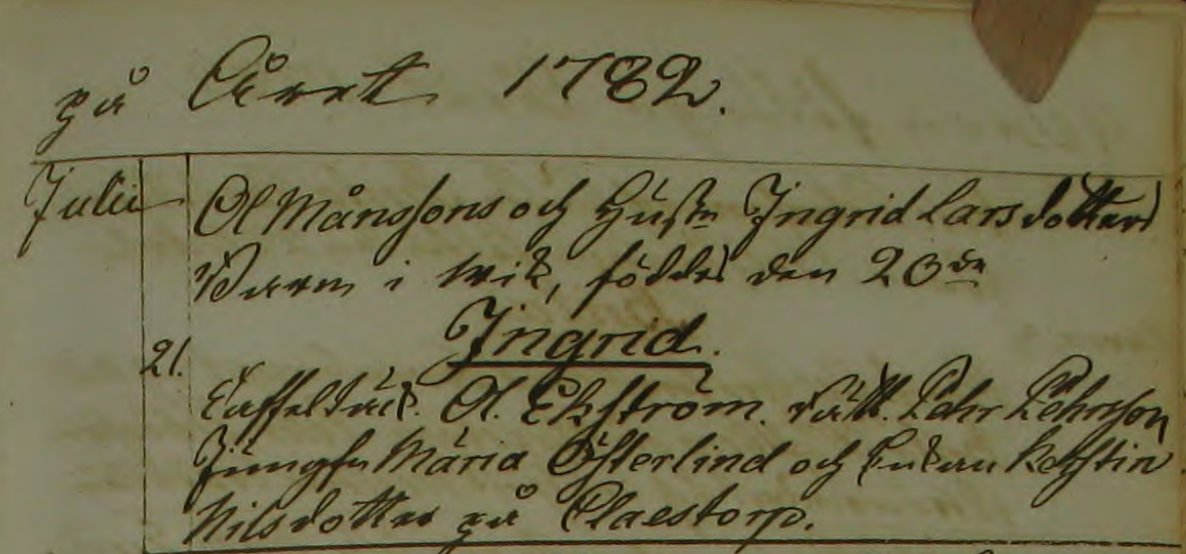 på Året 1782.
Julii Ol Månssons och Hust Ingrid Larsdotters
Barn i Wik, föddes den 20de
Ingrid.
21.
Taffeltäck. Ol. Ekström. Rätt. Pehr Pehrsson
Jungfr Maria Österlind och Enkan Kerstin
Nilsdotter på Claestorp.